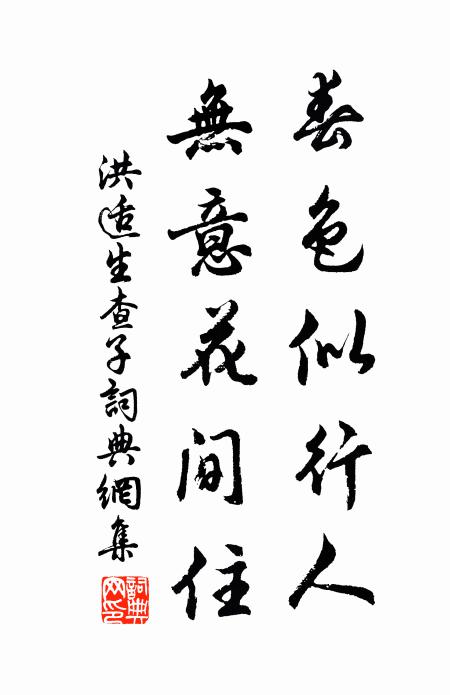 春色似行人
無意花間住
洪适生查子詞典網集
詞典网印